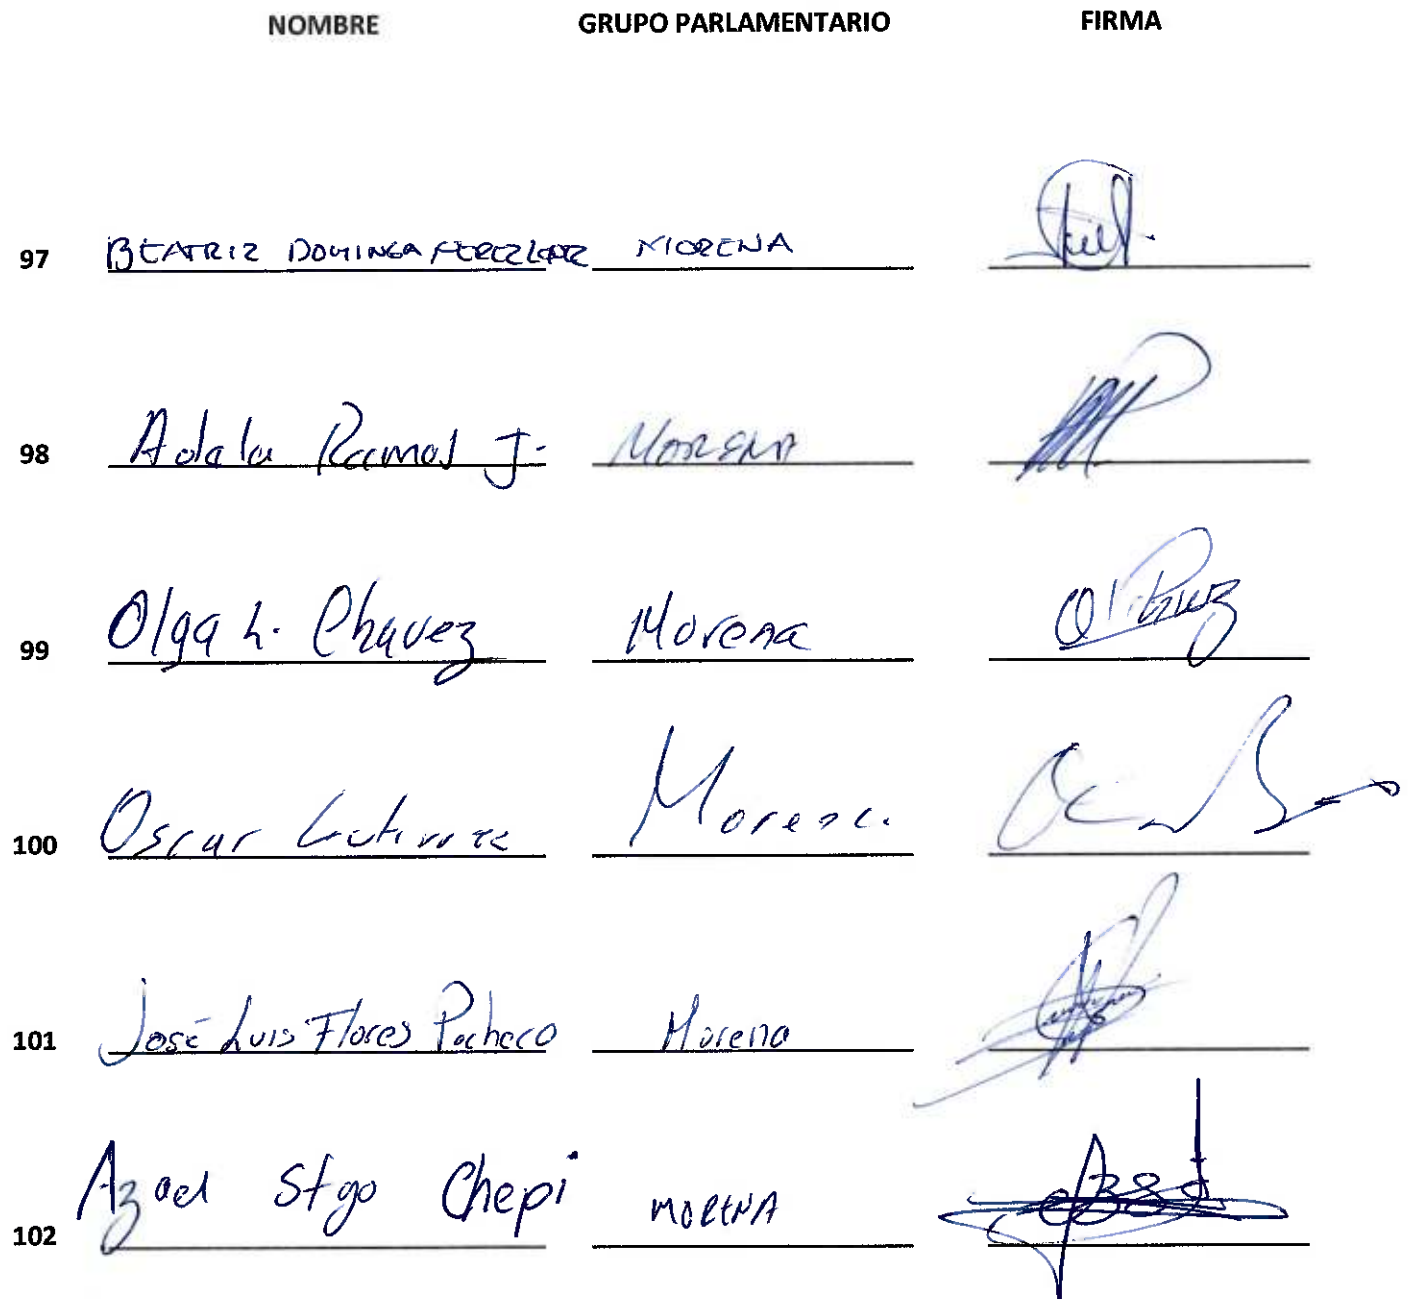 NOMBRE GRUPO PARLAMENTARIO FIRMA
97 BEATRIZ DOMINGA PEREZ LOPEZ MORENA
98 Adela Ramos J. MORENA
99 Olga L. Chavez Morena
100 Oscar Gutierrez Morena
101 José Luis Flores Pacheco Morena
102 Azael Stgo Chepi MORENA